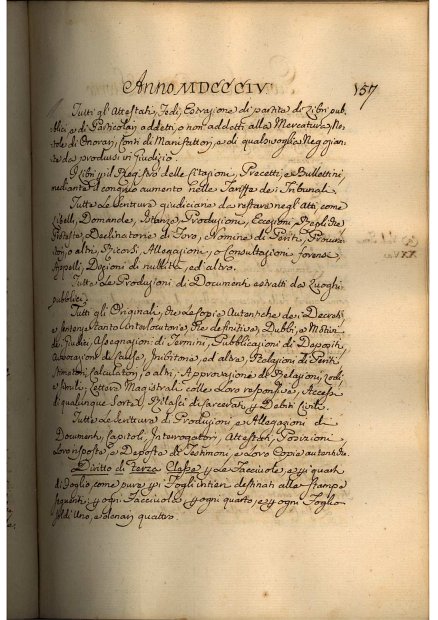 Anno MDCCCIV. 157
Tutti gl'Attestati, Fedi, Estrazione di partite di Libri pub-
blici, e di Particolari addetti, o non addetti alla Mercatura, No-
tole di Onorari, Conti di Manifattori, e di qualsivoglia Negozian-
te da prodursi in Giudizio.
I Libri, il Registro delle Citazioni, Precetti, e Bullettini,
mediante il congruo aumento nelle Tariffe dei Tribunali.
Tutte le Scritture giudiciarie da restare negl'Atti, come
Libelli, Domande, Istanze, Produzioni, Eccezioni, Repliche
Proteste, Declinatorie di Foro, Nomine di Periti, Procura-
tori, o altri, Ricordi, Allegazioni, o Consultazioni forensi,
Appelli, Dizioni di nullità, ed altro.
Tutte le Produzioni di Documenti estratti da Luoghi
pubblici.
Tutti gl'Originali, e le Copie Autentiche dei Decreti
e Sentenze tanto Interlocutorie, che definitive, Dubbi, e Motivi
dei Giudici, Assegnazioni di Termini, Pubblicazioni di Depositi,
ed altro, Relazioni di Periti
Stimatori, Calcolatori, o altri; Approvazione di Relazioni, Lodi
e simili, Lettere Magistrali colle Loro responsive, Accessi
di qualunque Sorte, Rilasci di Carcerati, Debiti Civili.
Tutte le Scritture di Produzioni, e Allegazioni di
Documenti, Capitoli, Interrogatori, Attestati, Posizioni,
Loro risposte, e Deposti di Testimoni, e Loro Copie autentiche
Diritto di terza Classe le Facciuole, e i quarti
di Foglio come pure i Fogli intieri destinati alle Stampe
seguenti; ogni Facciuola, ogni quarto, e ogni Foglio
Soldi Uno, e denari quattro.